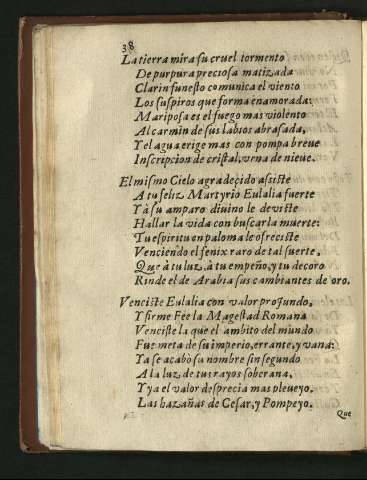 38
La tierra mira su cruel tormento
De purpura preciosa matizada
Clarin funesto comunica el viento
Los suspiros que forma enamorada:
Mariposa es el fuego mas violento
Al carmin de sus labios abrasada,
Y el agua erige mas con pompa breue
Inscripcion de cristal, vrna de nieue.
El mismo Cielo agradecido assiste
A tu feliz Martyrio Eulalia fuerte
Y à su amparo diuino le deviste
Hallar la vida con buscar la muerte:
Tu espiritu en paloma le ofreciste
Venciendo el fenix raro de tal suerte,
Que à tu luz, à tu empeño, y tu decoro
Rinde el de Arabia sus cambiantes de oro.
Venciste Eulalia con valor profundo,
Y firme Fèe la Magestad Romana
Venciste la que el ambito del mundo
Fue meta de su imperio, errante, y vana:
Ya se acabò su nombre sin segundo
A la luz de tus rayos soberana,
Y ya el valor desprecia mas pleueyo,
Las hazañas de Cesar, y Pompeyo.
Que